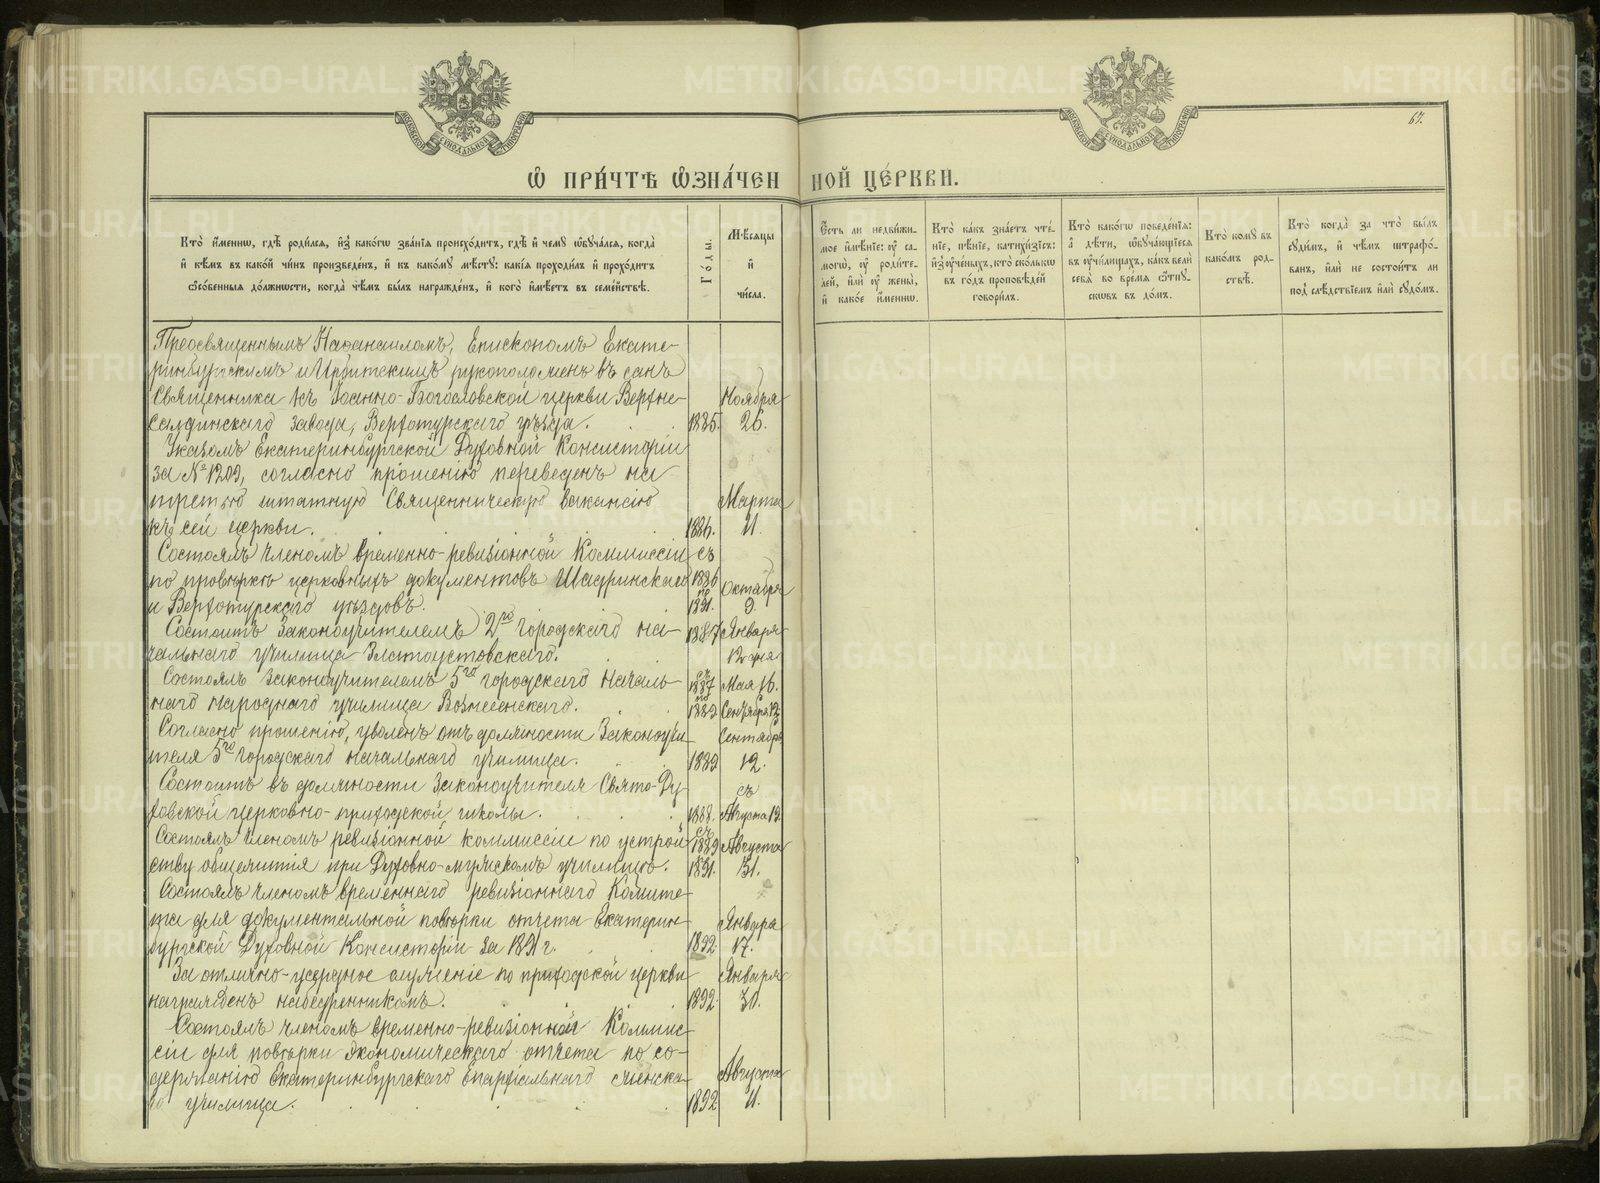 67.
МОСКОВСКОЙ СѴНОДАЛЬНОЙ ТИПОГРАФІИ
МОСКОВСКОЙ СѴНОДАЛЬНОЙ ТИПОГРАФІИ
Ѽ ПРИ́ЧТѢ Ѽ҆ЗНА́ЧЕННОЙ ЦЕ́РКВИ.
Кто̀ и҆́меннѡ, гдѣ̀ роди́лсѧ, и҆з̾ како́гѡ зва́нїѧ происхо́дитъ, гдѣ̀ и҆ чемꙋ̀ ѡ҆бꙋча́лсѧ, когда̀
и҆ кѣ́мъ въ како́й чи́нъ произведе́нъ, и҆ къ како́мꙋ мѣ́стꙋ: какі̑ѧ проходи́лъ и҆ прохо́дитъ
ѻ҆со́бенныѧ до́лжности, когда̀ чѣ́мъ бы́лъ награжде́нъ, и҆ кого̀ и҆мѣ́етъ въ семе́йствѣ.
Го́ды.
Мѣ́сѧцы
и҆
чи́сла.
Є҆́сть ли недви́жи-
мое и҆мѣ́нїе: ᲂу҆ са-
могѡ̀, ᲂу҆ роди́те-
лей, и҆лѝ ᲂу҆ жены̀,
и҆ како́е и҆́меннѡ.
Кто̀ ка́къ зна́етъ чте́-
нїе, пѣ́нїе, катихи́зїсъ:
и҆з̾ ᲂу҆че́ныхъ, кто̀ ско́лькѡ
въ го́дъ проповѣ́дей
говори́лъ.
Кто̀ како́гѡ поведе́нїѧ:
а҆ дѣ́ти, ѡ҆бꙋча́ющїесѧ
въ ᲂу҆чи́лищахъ, ка́къ вели̑
себѐ во вре́мѧ ѿпꙋ-
скѡвъ въ до́мъ.
Кто̀ комꙋ̀ въ
како́мъ род-
ствѣ̀.
Кто̀ когда̀ за что̀ бы́лъ
сꙋди́мъ, и҆ чѣ́мъ штрафо́-
ванъ, и҆лѝ не состои́тъ ли
под̾ слѣ́дствїемъ и҆лѝ сꙋдо́мъ.
Преосвященнымъ Наѳанаиломъ, Епископомъ Екате-
ринбургскимъ и Ирбитскимъ рукоположенъ въ санъ
Священника къ Іоанно-Богословской церкви Верхне- Ноября
салдинскаго завода, Верхотурскаго уѣзда. 1885. 26.
Указомъ Екатеринбургской Духовной Консисторіи
за № 1209, согласно прошенію переведенъ на
третью штатную Священническую вакансію Марта
къ сей церкви. 1886. 11.
Состоялъ членомъ временно-ревизіонной Коммиссіи съ
по провѣркѣ церковныхъ документовъ Шадринскаго 1886 Октября
и Верхотурскаго уѣздовъ. по 1891. 9.
Состоитъ Законоучителемъ 2го городскаго на- 1887 Января
чальнаго училища Златоустовскаго. 12 дня
Состоялъ законоучителемъ 5го городскаго началь- съ 1887 Мая 16.
наго народнаго училища Вознесенскаго. по 1889 Сентября 12
Согласно прошенію, уволенъ отъ должности Законоучи- Сентября
теля 5го городскаго начальнаго училища. 1889 12.
Состоитъ въ должности Законоучителя Свято-Ду- съ
ховской церковно-приходской школы. 1888. Августа 19.
Состоялъ членомъ ревизіонной коммиссіи по устрой- съ 1889 Августа
ству общежитія при Духовно-мужскомъ училищѣ. 1891. 31.
Состоялъ членомъ временнаго ревизіоннаго Комите-
та для документальной повѣрки отчета Екатерин- Января
бургской Духовной Консисторіи за 1891 г. 1892 17.
За отлично-усердное служеніе по приходской церкви Января
награжденъ набедренникомъ. 1892 30.
Состоялъ членомъ временно-ревизіонной Коммис-
сіи для повѣрки экономическаго отчета по со-
держанію Екатеринбургскаго Епархіальнаго женска- Августа
го училища. 1892 11.
METRIKI.GASO-URAL.RU